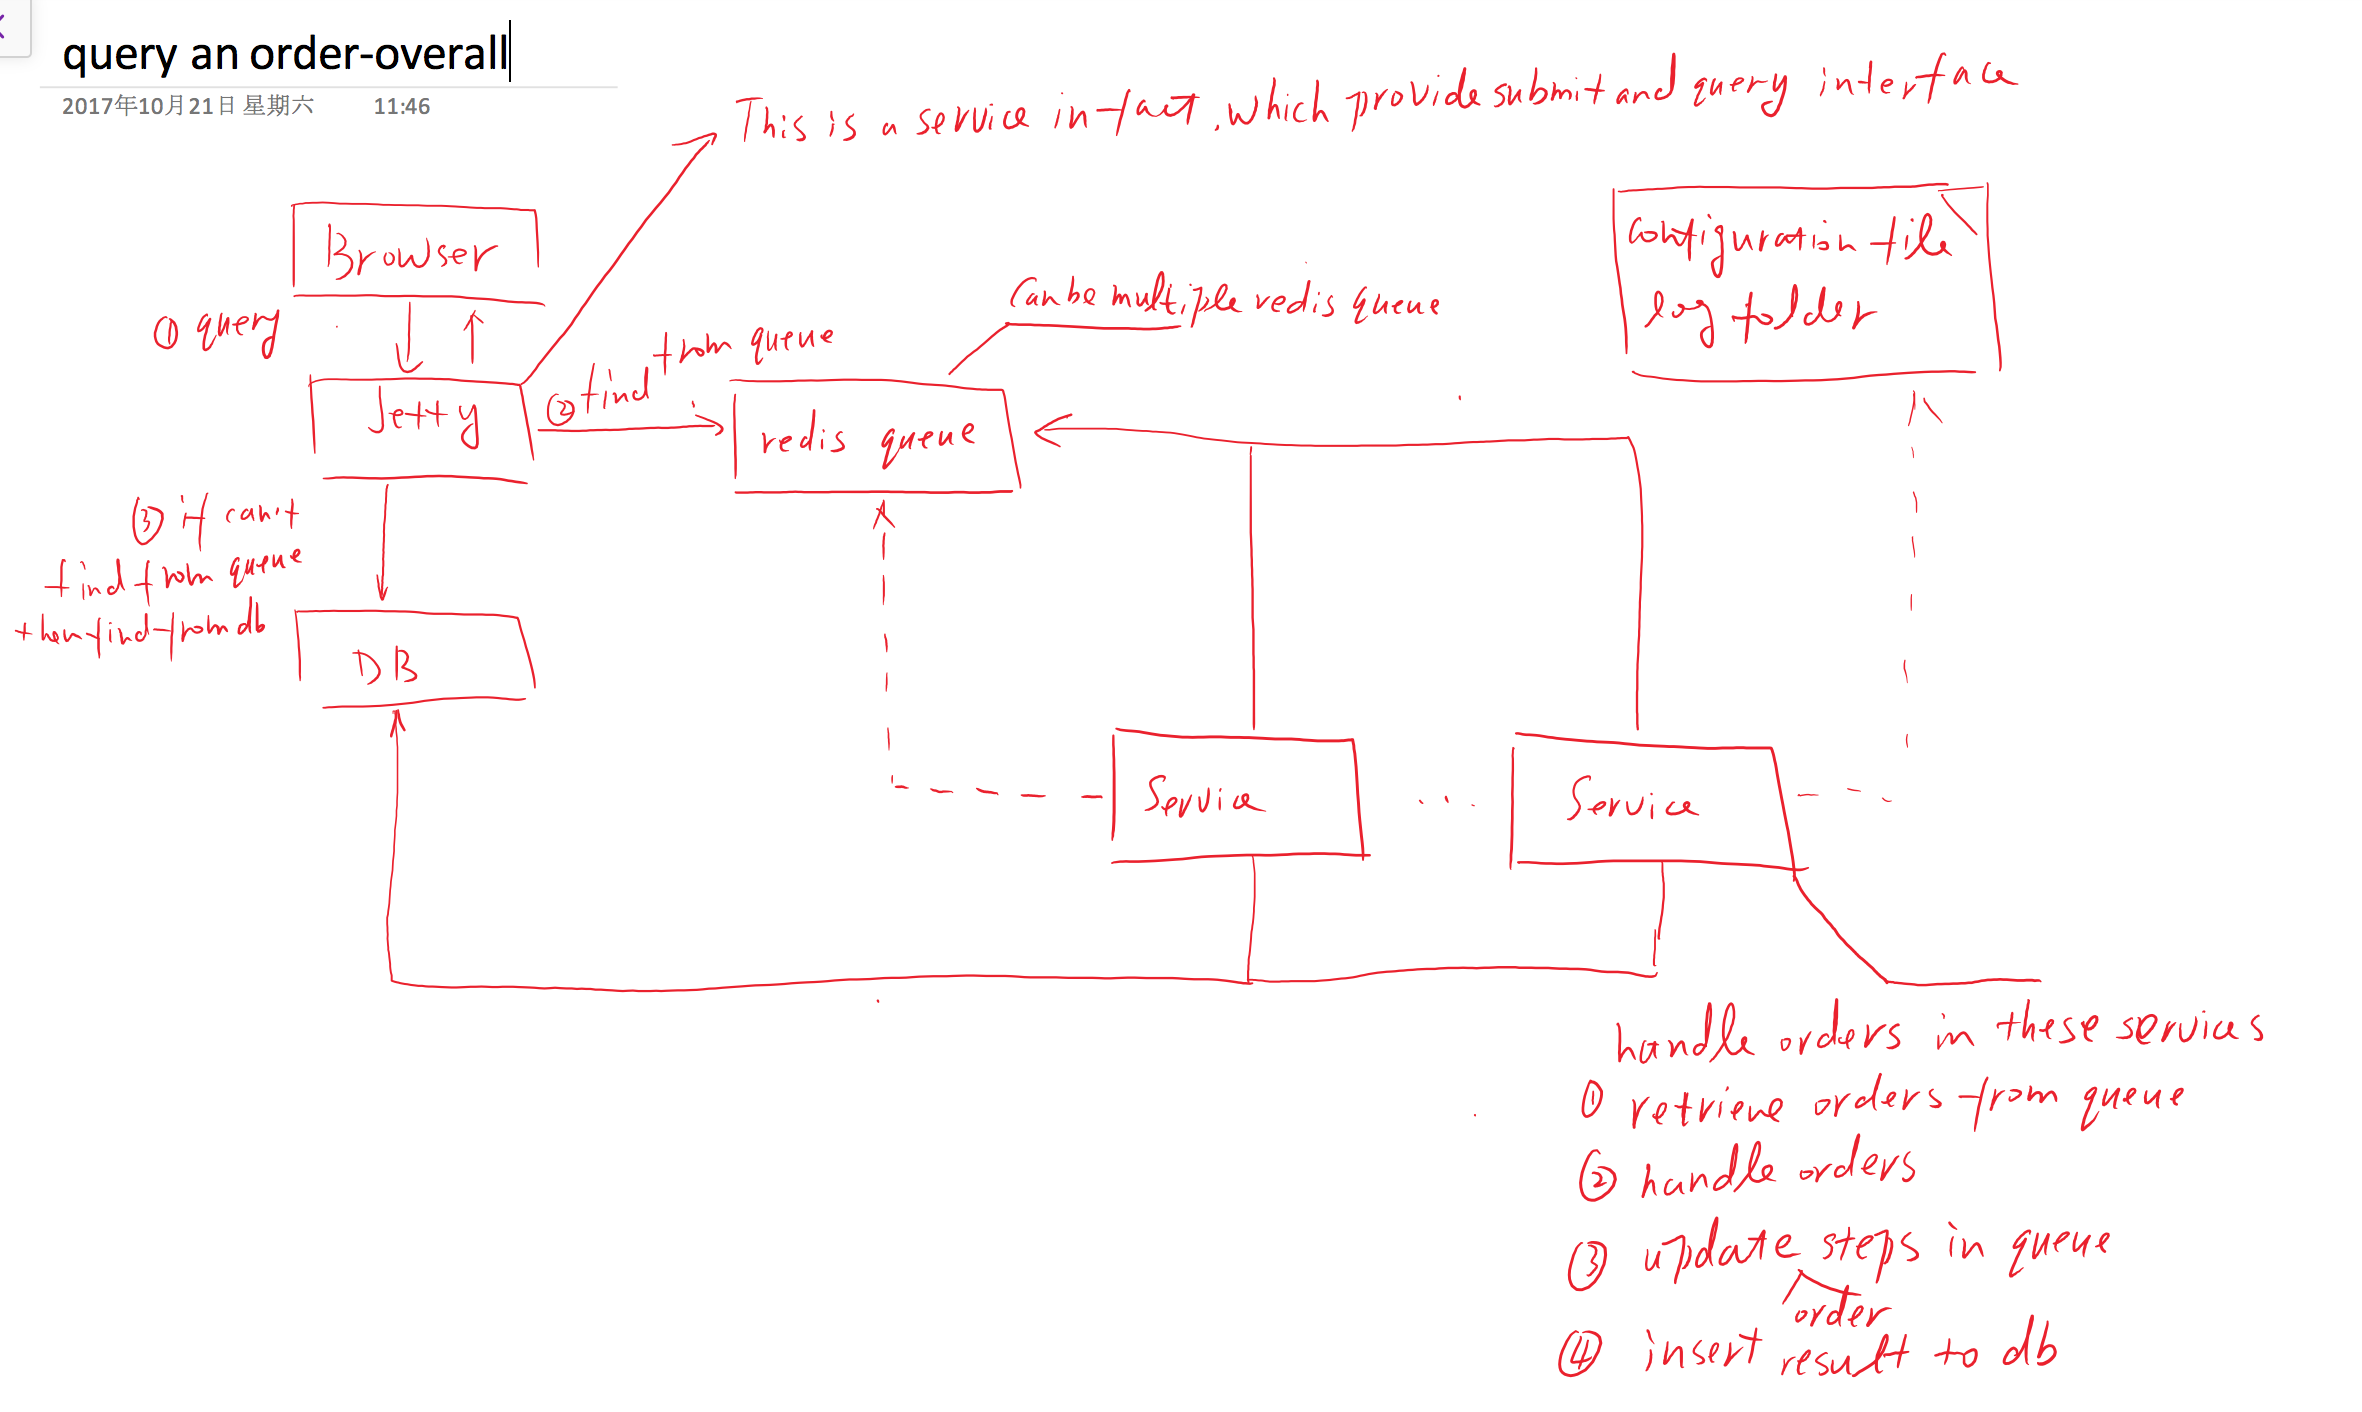 query an order-overall
2017年10月21日 星期六 11:46
This is a service in fact, which provide submit and query interface
Browser
① query
Jetty
② find from queue
redis queue
Can be multiple redis queue
configuration file
log folder
③ if can't
find from queue
then find from db
DB
Service
...
Service
handle orders in these services
① retrieve orders from queue
② handle orders
③ update steps in queue
order
④ insert result to db